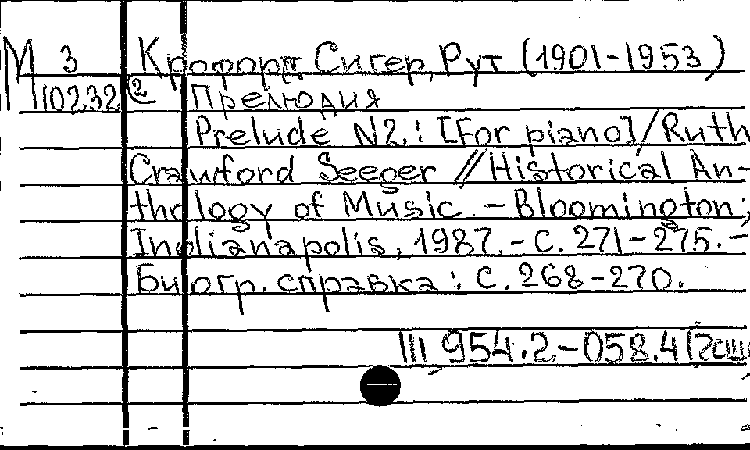 М 3 Крофорд Сигер, Рут (1901-1953)
110232 2 Прелюдия
Prelude N2.: [For piano]/Ruth
Crawford Seeger // Historical An-
thology of Music. - Bloomington;
Indianapolis, 1987. - С. 271-275. -
Биогр. справка: с. 268-270.
Ш 954.2-058.4(7сш